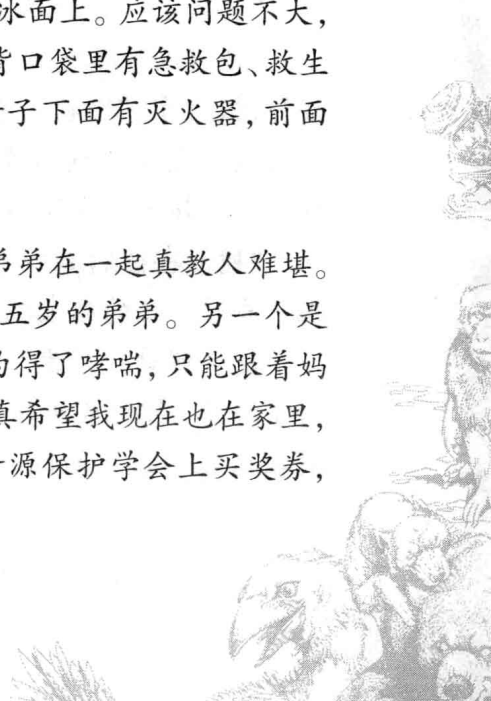 冰面上。应该问题不大，
背口袋里有急救包、救生
子下面有灭火器，前面
弟弟在一起真教人难堪。
五岁的弟弟。另一个是
为得了哮喘，只能跟着妈
真希望我现在也在家里，
源保护学会上买奖券，